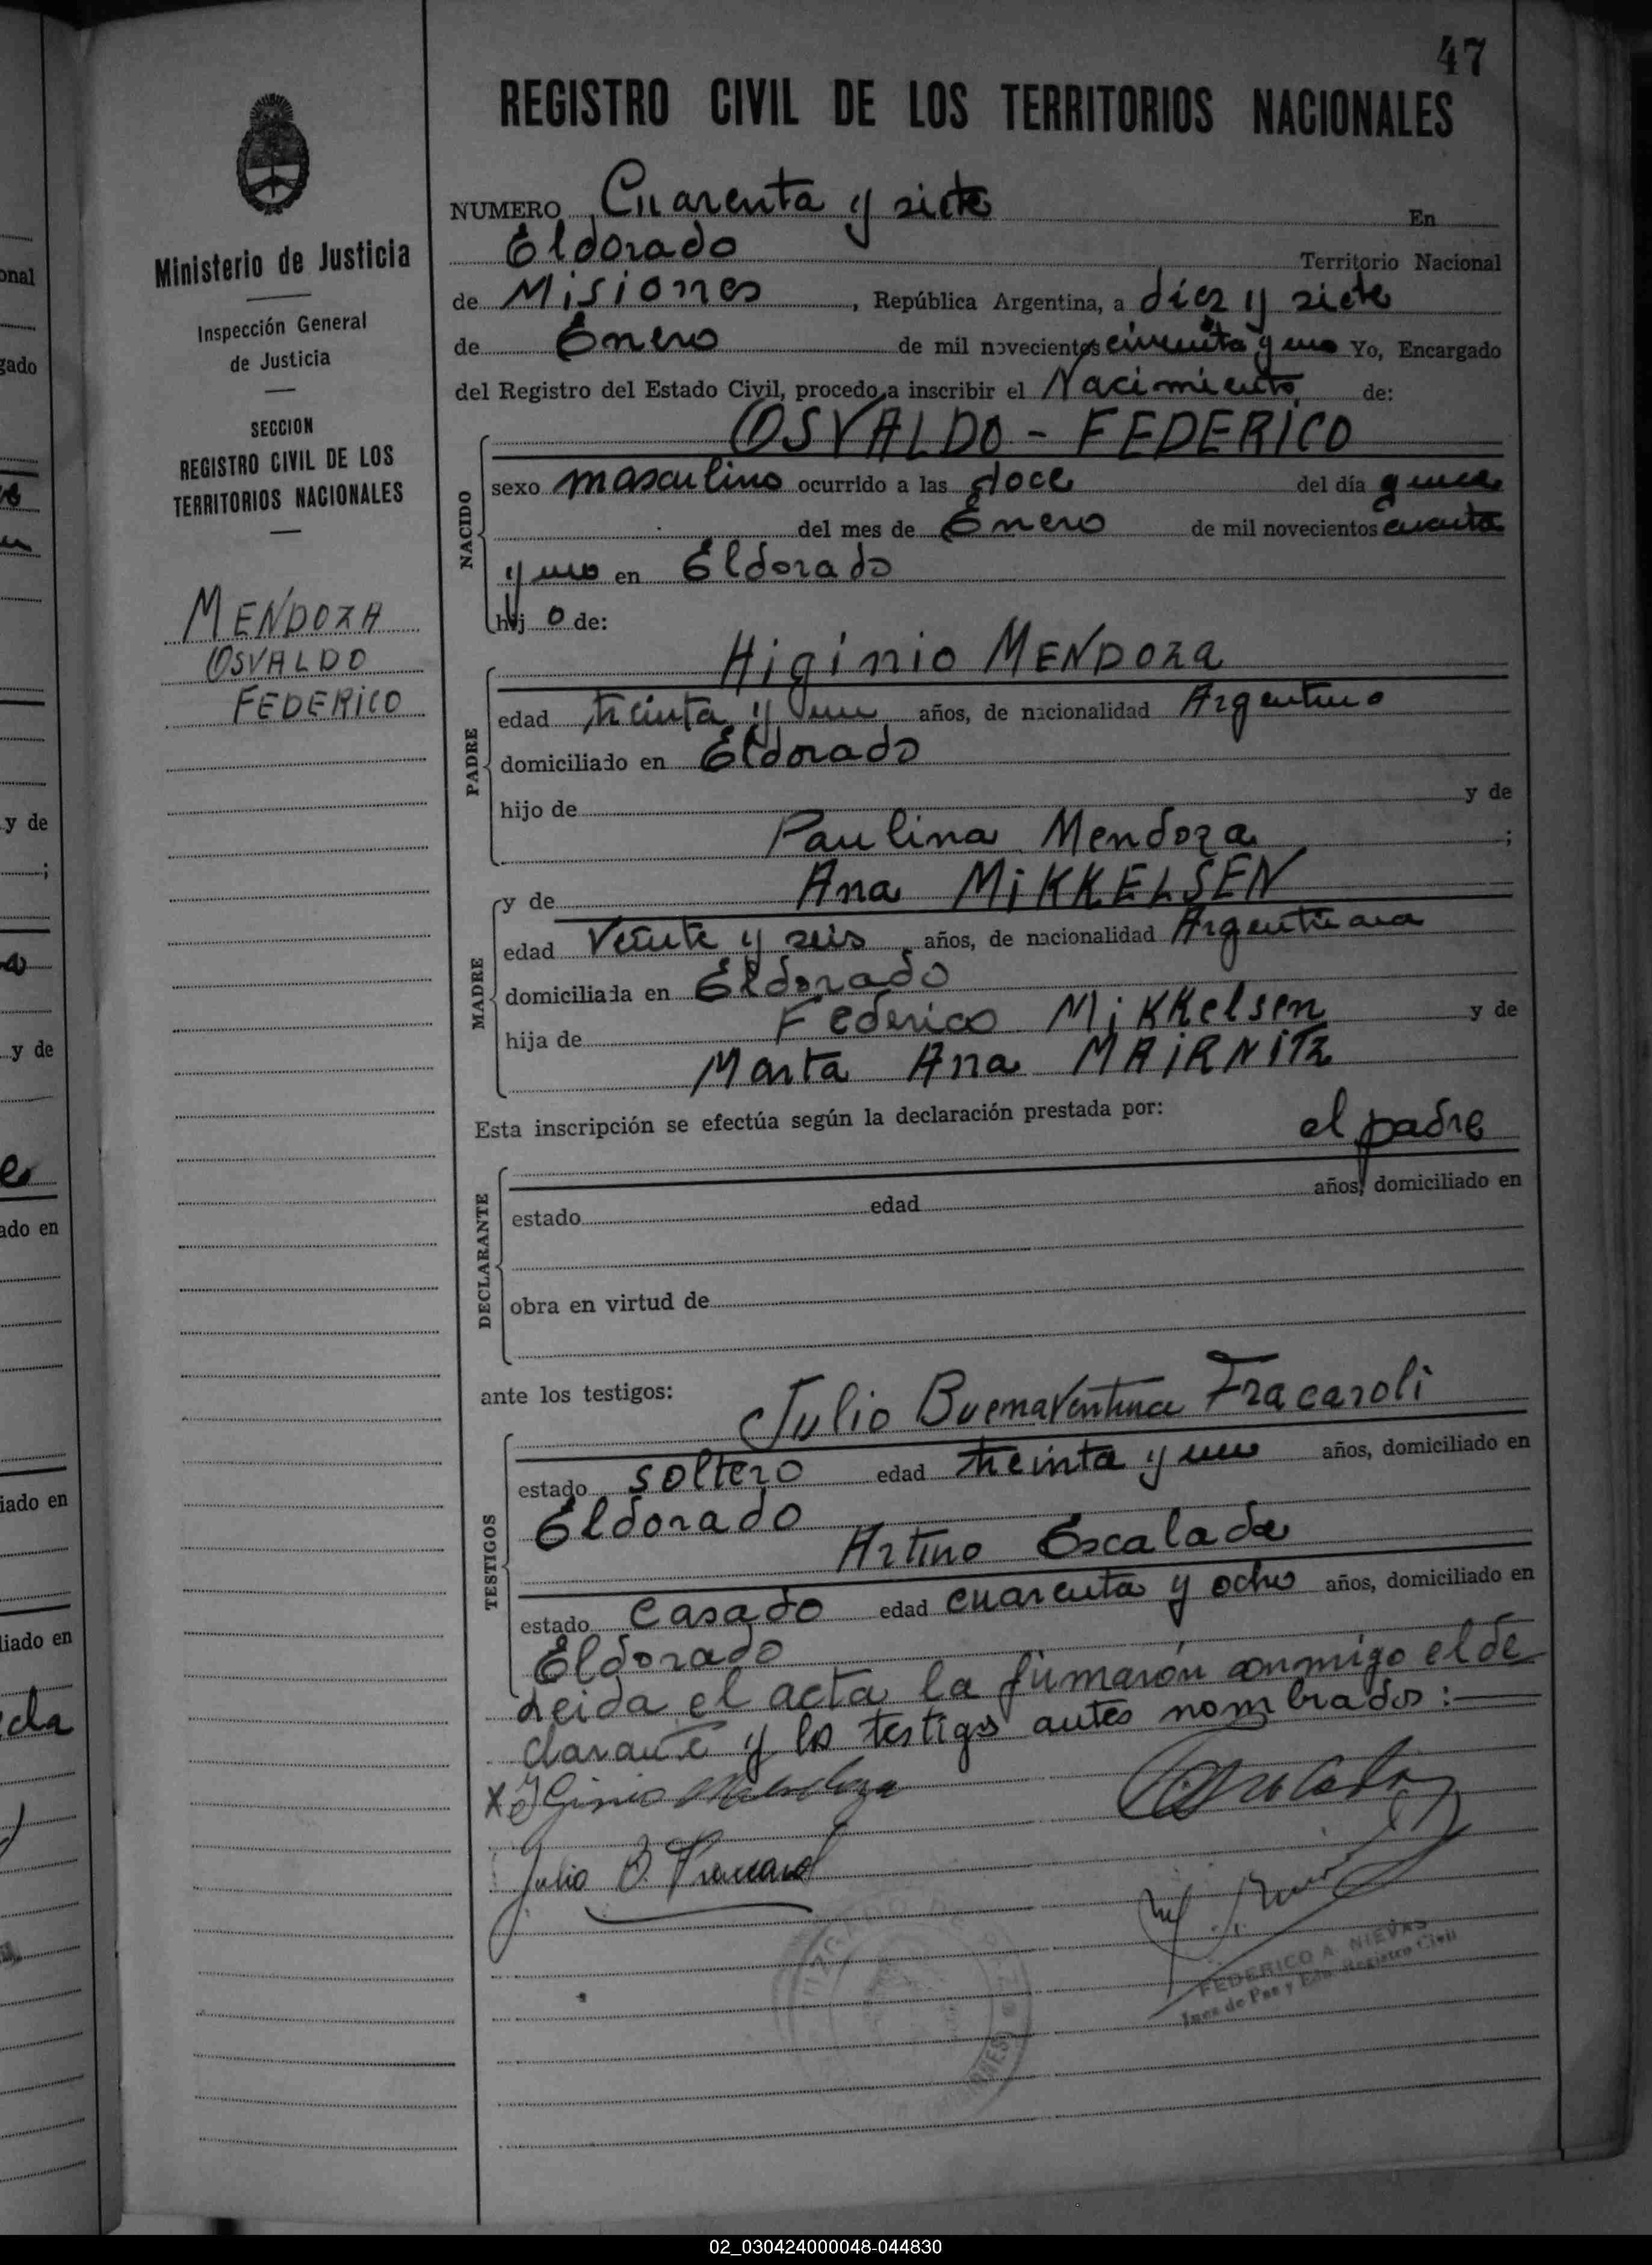 47
REGISTRO CIVIL DE LOS TERRITORIOS NACIONALES
Ministerio de Justicia
Inspección General
de Justicia
SECCION
REGISTRO CIVIL DE LOS
TERRITORIOS NACIONALES
MENDOZA
OSVALDO
FEDERICO
NUMERO Cuarenta y siete En
Eldorado Territorio Nacional
de Misiones, República Argentina, a diez y siete
de Enero de mil novecientos cincuenta y uno Yo, Encargado
del Registro del Estado Civil, procedo a inscribir el Nacimiento, de:
OSVALDO - FEDERICO
NACIDO
sexo masculino ocurrido a las doce del día quince
del mes de Enero de mil novecientos
y uno en Eldorado
hij o de:
Higinio MENDOZA
PADRE
edad treinta y un años, de nacionalidad Argentino
domiciliado en Eldorado
hijo de y de
Paulina Mendoza ;
MADRE
y de Ana MiKKELSEN
edad Veinte y seis años, de nacionalidad Argentina
domiciliada en Eldorado
hija de Federico MiKKelsen y de
Marta Ana MAiRNiTz
Esta inscripción se efectúa según la declaración prestada por: el padre
DECLARANTE
estado edad años, domiciliado en
obra en virtud de
ante los testigos: Julio Buenaventura Fracaroli
TESTIGOS
estado soltero edad treinta y un años, domiciliado en
Eldorado
Escalada
estado Casado edad cuarenta y ocho años, domiciliado en
Eldorado
Leida el acta la firmarón conmigo el de
clarante y los testigos antes nombrados:—
Julio B.
FEDERICO A. NIEVAS
Juez de Paz y Enc. Registro Civil
02_030424000048-044830